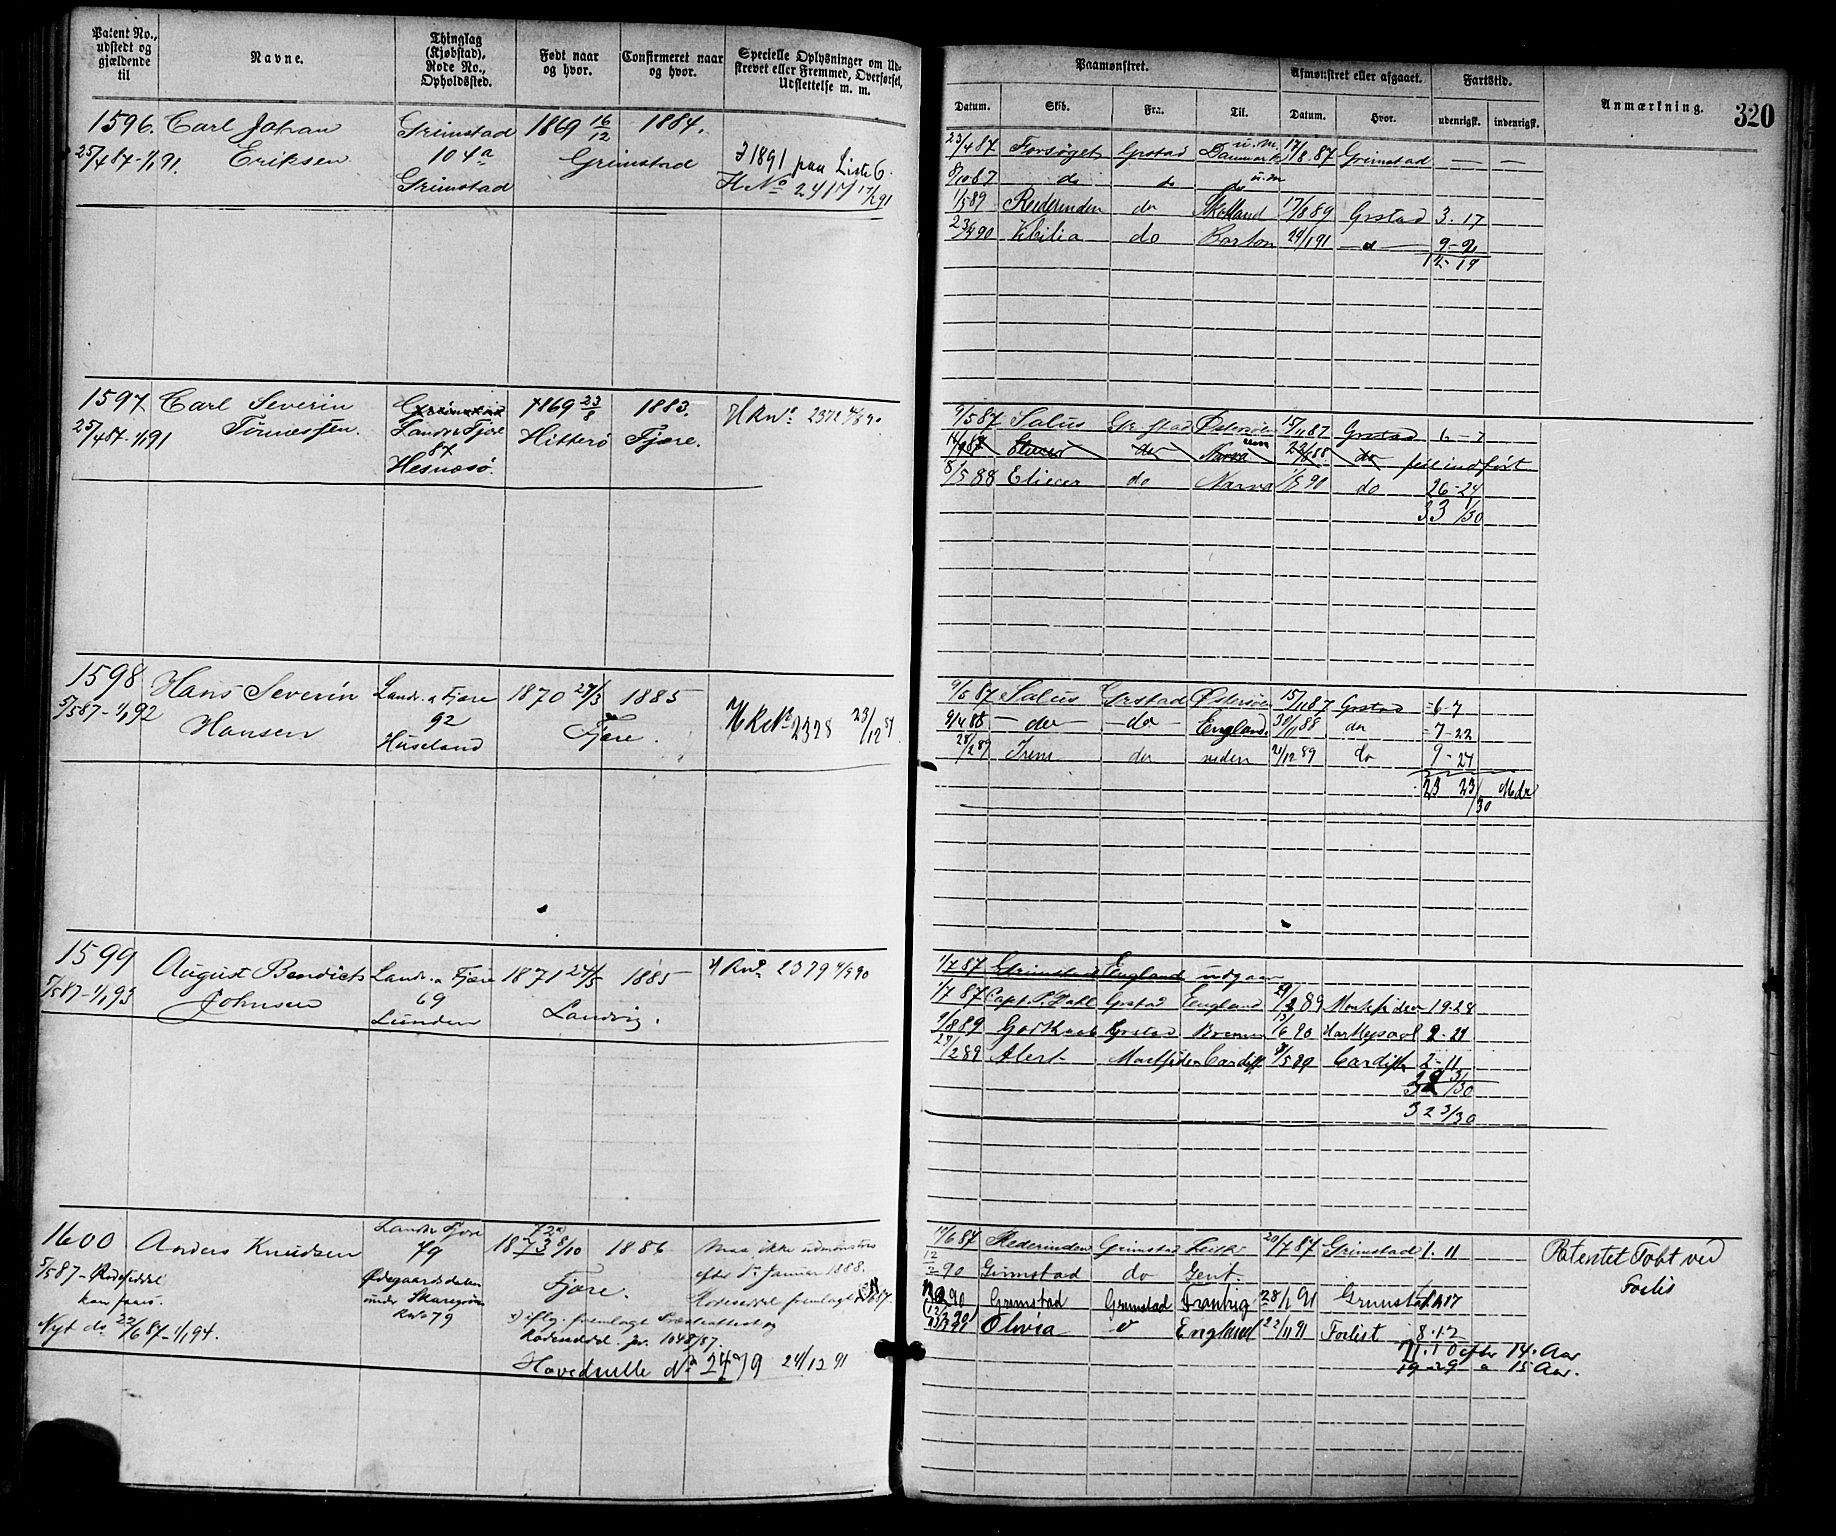 Patent No., udstedt og gjældende til
Navne.
Thinglag (Kjøbstad), Rode No., Opholdssted.
Født naar og hvor.
Confirmeret naar og hvor.
Specielle Oplysninger om Udskrevet eller Fremmed, Overførsel, Udslettelse m. m.
Paamønstret.
Afmønstret eller afgaaet.
Fartstid.
Anmærkning.
320
Datum.
Skib.
Fra.
Til.
Datum.
Hvor.
udenrigsk.
indenrigsk.
1596. Carl Johan Grimstad 1869 16/12 1884.
25/4 87-1/1 91. Eriksen 104a Grimstad 1891 paa Liste 6.
Grimstad H No 2417 17/2 91
23/4 87 Forsøget Grstad Danmark u.m. 17/8 87 Grimstad — —
8/10 87 do do do u.m
1/5 89 Rederinden do 17/8 89 Grstad 3. 17
23/4 90 do Barton 24/1 91 — d — 9-2
12-19
1597 Carl Severin Grimstad 1869 23/8 1883. HRNo. 2372
25/4 87-1/1 91 Tønnessen. Landv. Fjære Hitterø Fjære.
87
Hesnæsø.
9/5 87 Salus Grstad Østersøen 15/11 87 Grstad 6-7
Eliecer do Narva do feil indført
8/5 88 Eliecer do Narva 90 do 26-24
33 /30
1598 Hans Severin Landv. a Fjære 1870 27/3 1885
5/5 87-1/1 92 Hansen 92 Fjære. HRNo 2328 23/12 89
Huseland
9/5 87 Salus Grstad Østersøen 15/11 87 Grstad =6-7
9/4 88 — do — do England. 30/11 88 do =7-22
28/2 89 Irene do neden 21/12 89 do 9-24
23 23/30 Mdr
1599 August Bendicts Landv. a Fjære 1871 24/5 1885 HRNo 2379 4/3 90
5/5 87-1/1 93 Johnsen 69 Landvig.
Lunden
1/7 87 Grimstad England udgaar
1/7 87 Capt. P. Dahl Grstad England 89 19-28
9/8 89 Godthaab Grstad Bremen 90 2-24
28/2 89 Alert Cardiff 8/5 89 Cardiff 2-11
32 3/30
32 3/30
1600 Anders Knudsen Landv. Fjære 1873 8/10 1886. Maa ikke udmønstres
72
5/5 87 - Rodeseddel 79 Fjære. efter 1. Januar 1888.
kan faaes. Ødegaardsdalen Rodeseddel fremlagt
under Skaregrøm
Rode 79 x) iflg. fremlagt Præsteattest og
Nyt do 22/6 87-1/1 94. Rodeseddel jr. 1048/87.
Hovedrulle No 2479 24/12 91
11/6 87 Rederinden Grimstad Leith 20/7 87 Grimstad 1. 11 Patentet Tabt ved
12/2 90 Grimstad do Gent. Forlis
90 Grimstad Grimstad 28/1 91 Grimstad
Olivia d England 22/11 91 Forlist 8.12
21.10 efter 14. Aar
19-29 a 15 Aar.